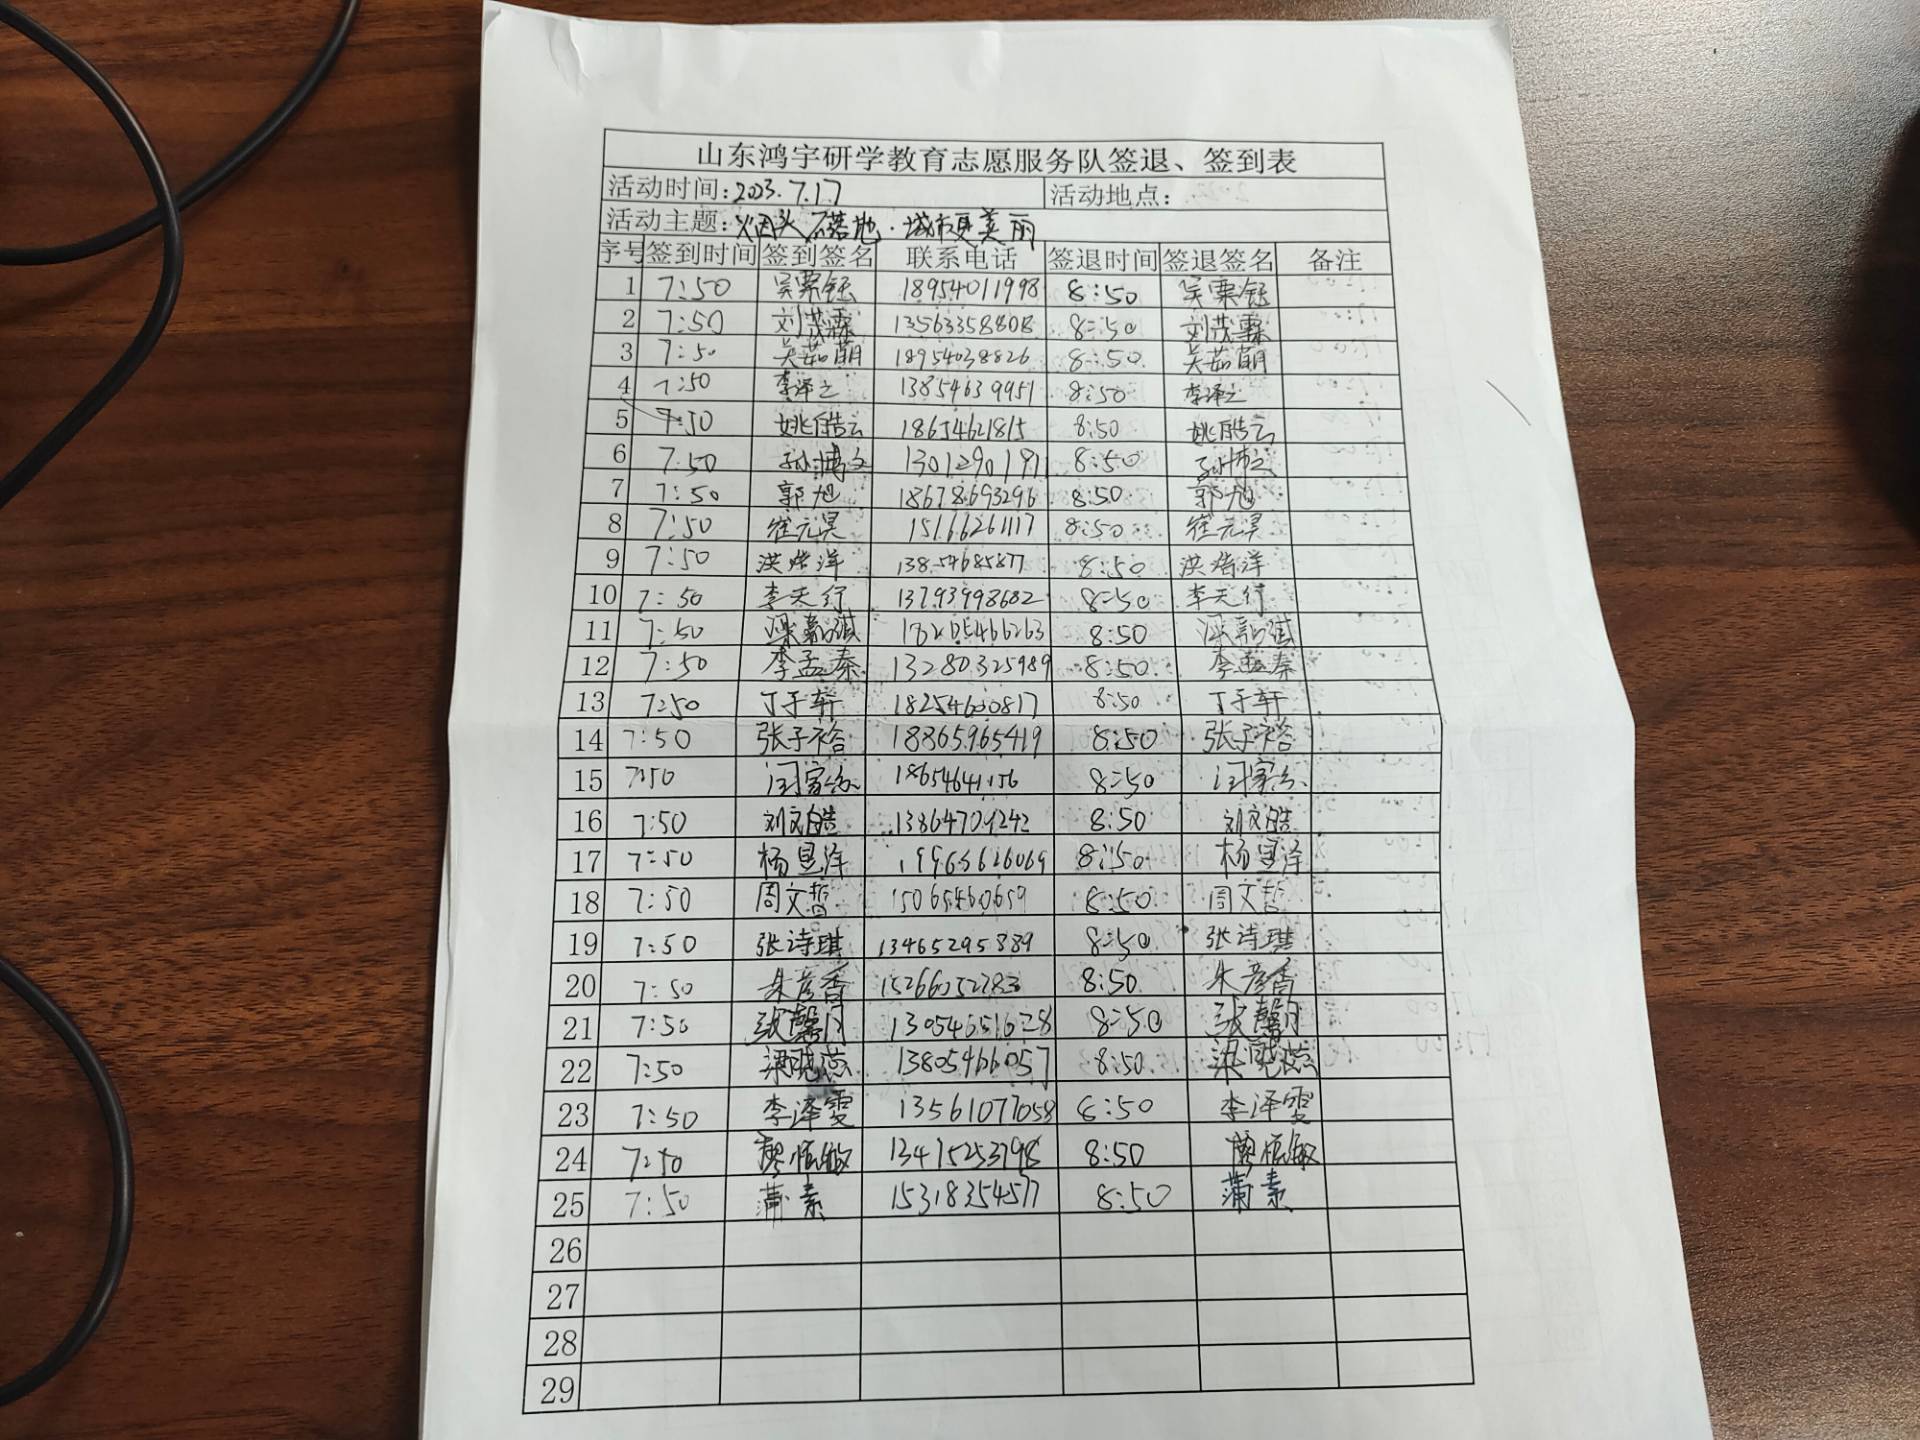 山东鸿宇研学教育志愿服务队签退、签到表
活动时间:2023.7.17 活动地点:
活动主题:烟头不落地·城市更美丽
序号 签到时间 签到签名 联系电话 签退时间 签退签名 备注
1 7:50 吴霁钰 18954011998 8:50 吴霁钰
2 7:50 刘茂霖 13563358808 8:50 刘茂霖
3 7:50 关茹萌 18954038826 8:50 关茹萌
4 7:50 李泽之 13854639951 8:50 李泽之
5 7:50 姚皓云 18654621815 8:50 姚皓云
6 7:50 孙博文 13012901911 8:50 孙博文
7 7:50 郭旭 18678693296 8:50 郭旭
8 7:50 崔元昊 15166261117 8:50 崔元昊
9 7:50 洪浩洋 13854685877 8:50 洪浩洋
10 7:50 李天行 13793998682 8:50 李天行
11 7:50 18205466263 8:50
12 7:50 李孟秦 13280325989 8:50 李孟秦
13 7:50 丁子轩 18254600817 8:50 丁子轩
14 7:50 张子裕 18865965419 8:50 张子裕
15 7:50 8:50
16 7:50 刘文皓 13864709242 8:50 刘文皓
17 7:50 杨昱泽 19963626069 8:50 杨昱泽
18 7:50 周文哲 15065460659 8:50 周文哲
19 7:50 张诗琪 13465295889 8:50 张诗琪
20 7:50 朱彦香 15266052783 8:50 朱彦香
21 7:50 张馨月 13054651628 8:50 张馨月
22 7:50 梁晓燕 13805466057 8:50 梁晓燕
23 7:50 李泽雯 13561077058 8:50 李泽雯
24 7:50 13475253798 8:50
25 7:50 蒲素 15318354577 8:50 蒲素
26
27
28
29